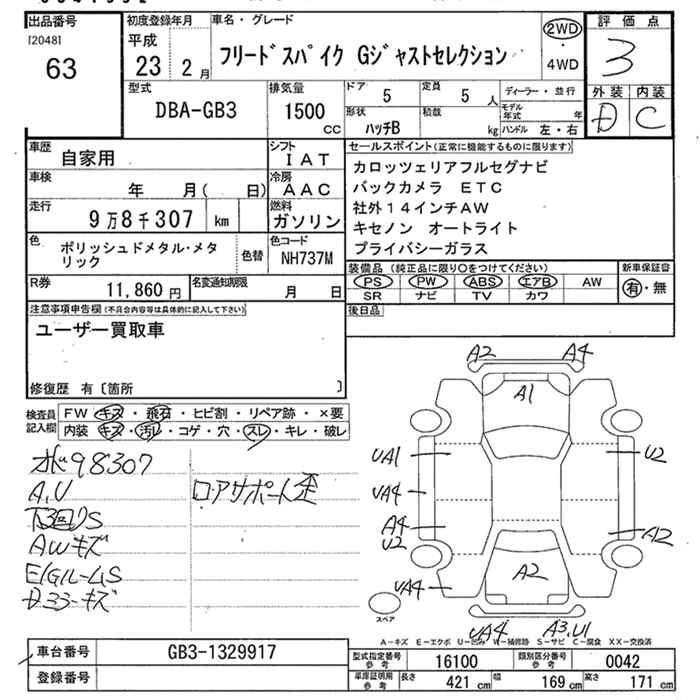 出品番号
[2048]
63
初度登録年月
平成
23 2 月
車名・グレード
フリードスパイク Gジャストセレクション
2WD
・
4WD
評価点
3
外装 内装
D C
型式
DBA-GB3
排気量
1500
CC
ドア 5
定員 5 人
形状
ハッチB
積載
kg
ディーラー・並行
モデル年式 年
ハンドル 左・右
車歴
自家用
シフト
IAT
車検
年 月( 日)
冷房
AAC
走行
9万8千307 km
燃料
ガソリン
色
ポリッシュドメタル・メタリック
色替
色コード
NH737M
R券
11,860 円
名変通知期限
月 日
セールスポイント(正常に機能するものに限ります)
カロッツェリアフルセグナビ
バックカメラ ETC
社外14インチAW
キセノン オートライト
プライバシーガラス
装備品(純正品に限り○をつけてください)
新車保証書
PS PW ABS エアB AW
有・無
SR ナビ TV カワ
後日品
注意事項申告欄(不具合内容等は具体的に記入して下さい)
ユーザー買取車
修復歴 有〔箇所 〕
検査員記入欄
FW キズ・飛石・ヒビ割・リペア跡・×要
内装 キズ・汚レ・コゲ・穴・スレ・キレ・破レ
98307
A,U
下回りS
AWキズ
E/GルームS
ロアサポート歪
A2 A4
A1
UA1 U2
UA4
A4
U2 A2
A2
UA4
UA4 A3,U1
スペア
A-キズ E-エクボ U-凹み W-補修跡 S-サビ C-腐食 XX-交換済
車台番号
GB3-1329917
登録番号
型式指定番号
参考
16100
類別区分番号
参考
0042
車庫証明用
参考
長さ 421 cm
幅 169 cm
高さ 171 cm